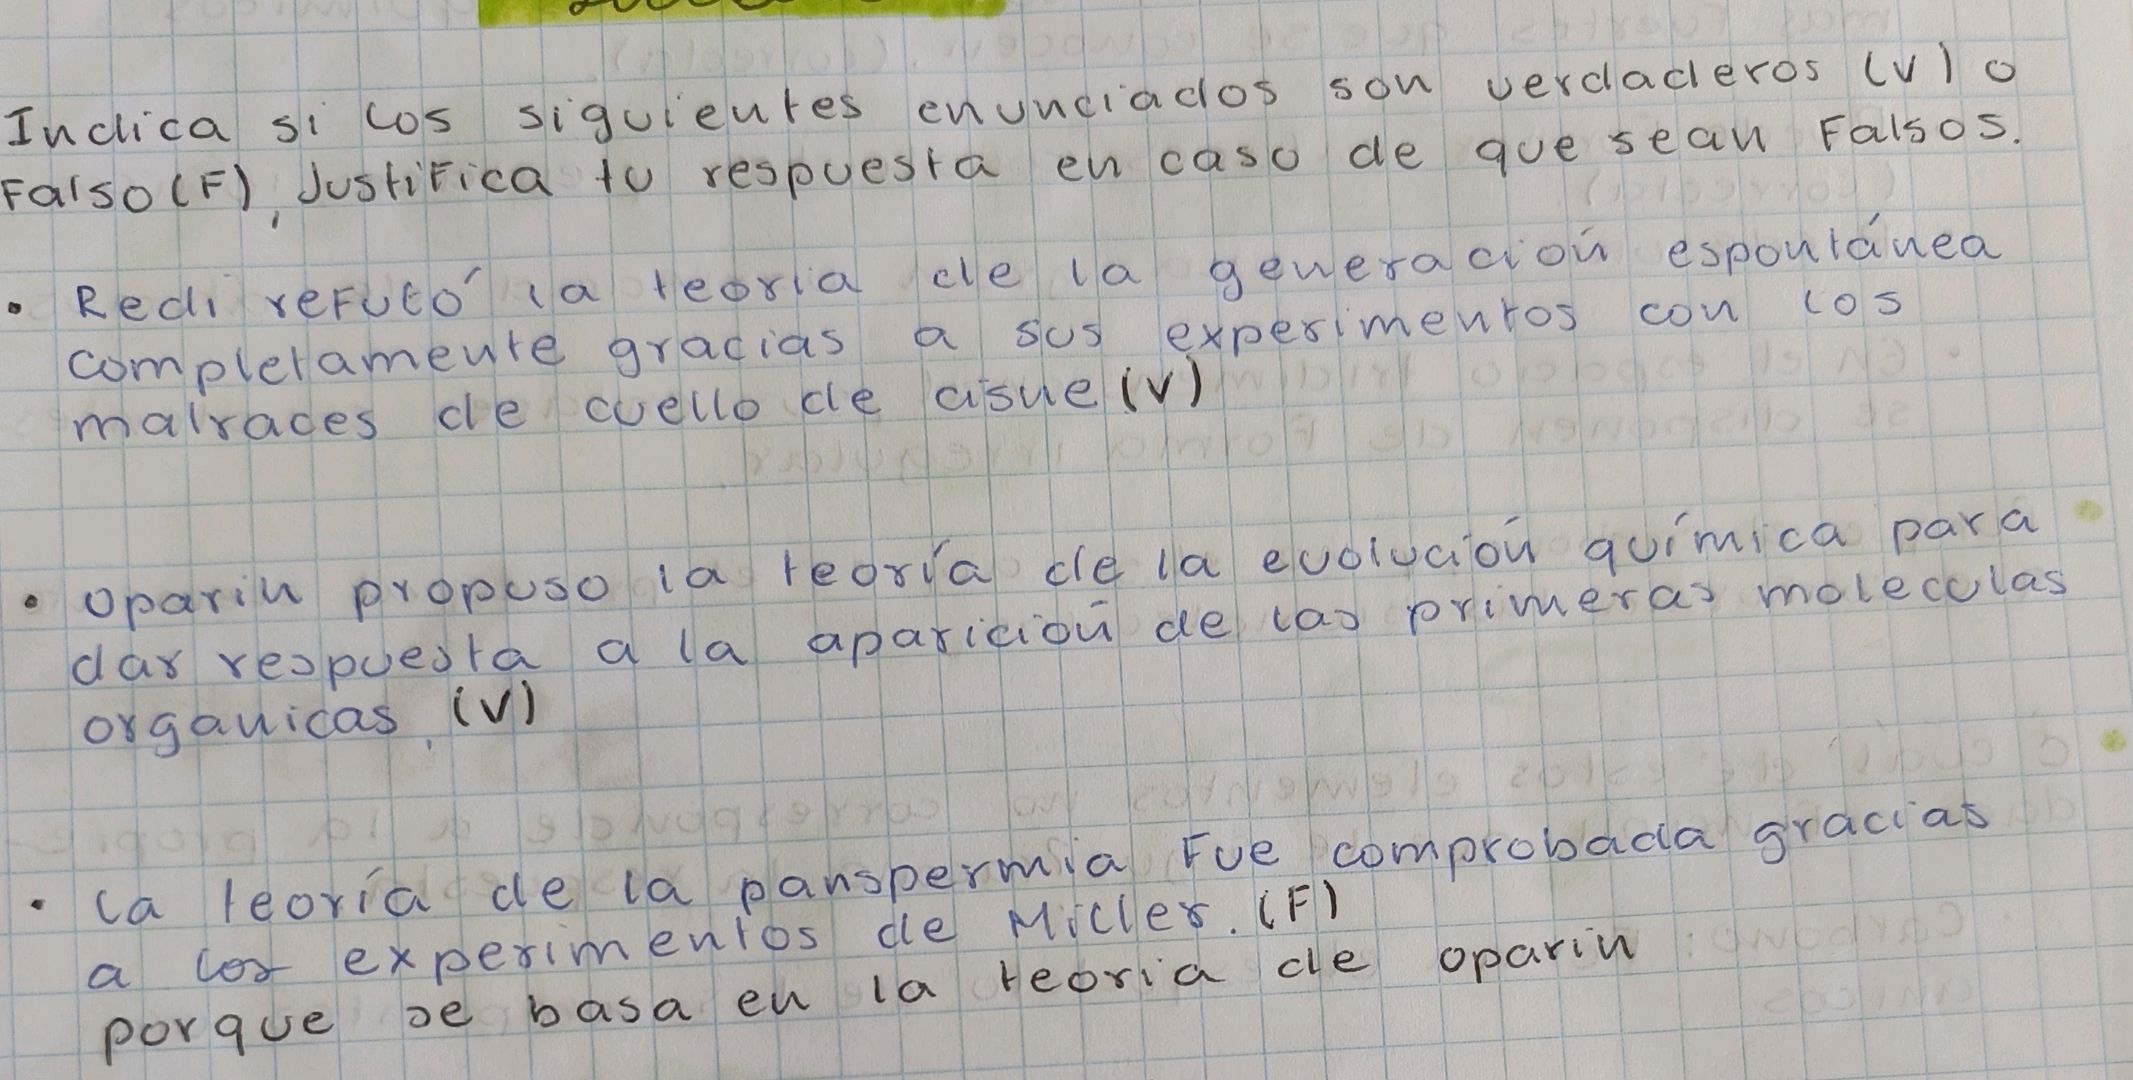 Indica si los siguientes enunciados son verdaderos (V) o
Falso (F), Justifica tu respuesta en caso de que sean Falsos.
• Redi refutó la teoria de la generación espontánea
completamente gracias a sus experimentos con los
matraces de cuello de cisne (V)
• Oparin propuso la teoría de la evolución química para
dar respuesta a la aparición de las primeras moleculas
organicas. (V)
• La teoría de la panspermia Fue comprobada gracias
a los experimentos de Miller. (F)
porque se basa en la teoria de oparin